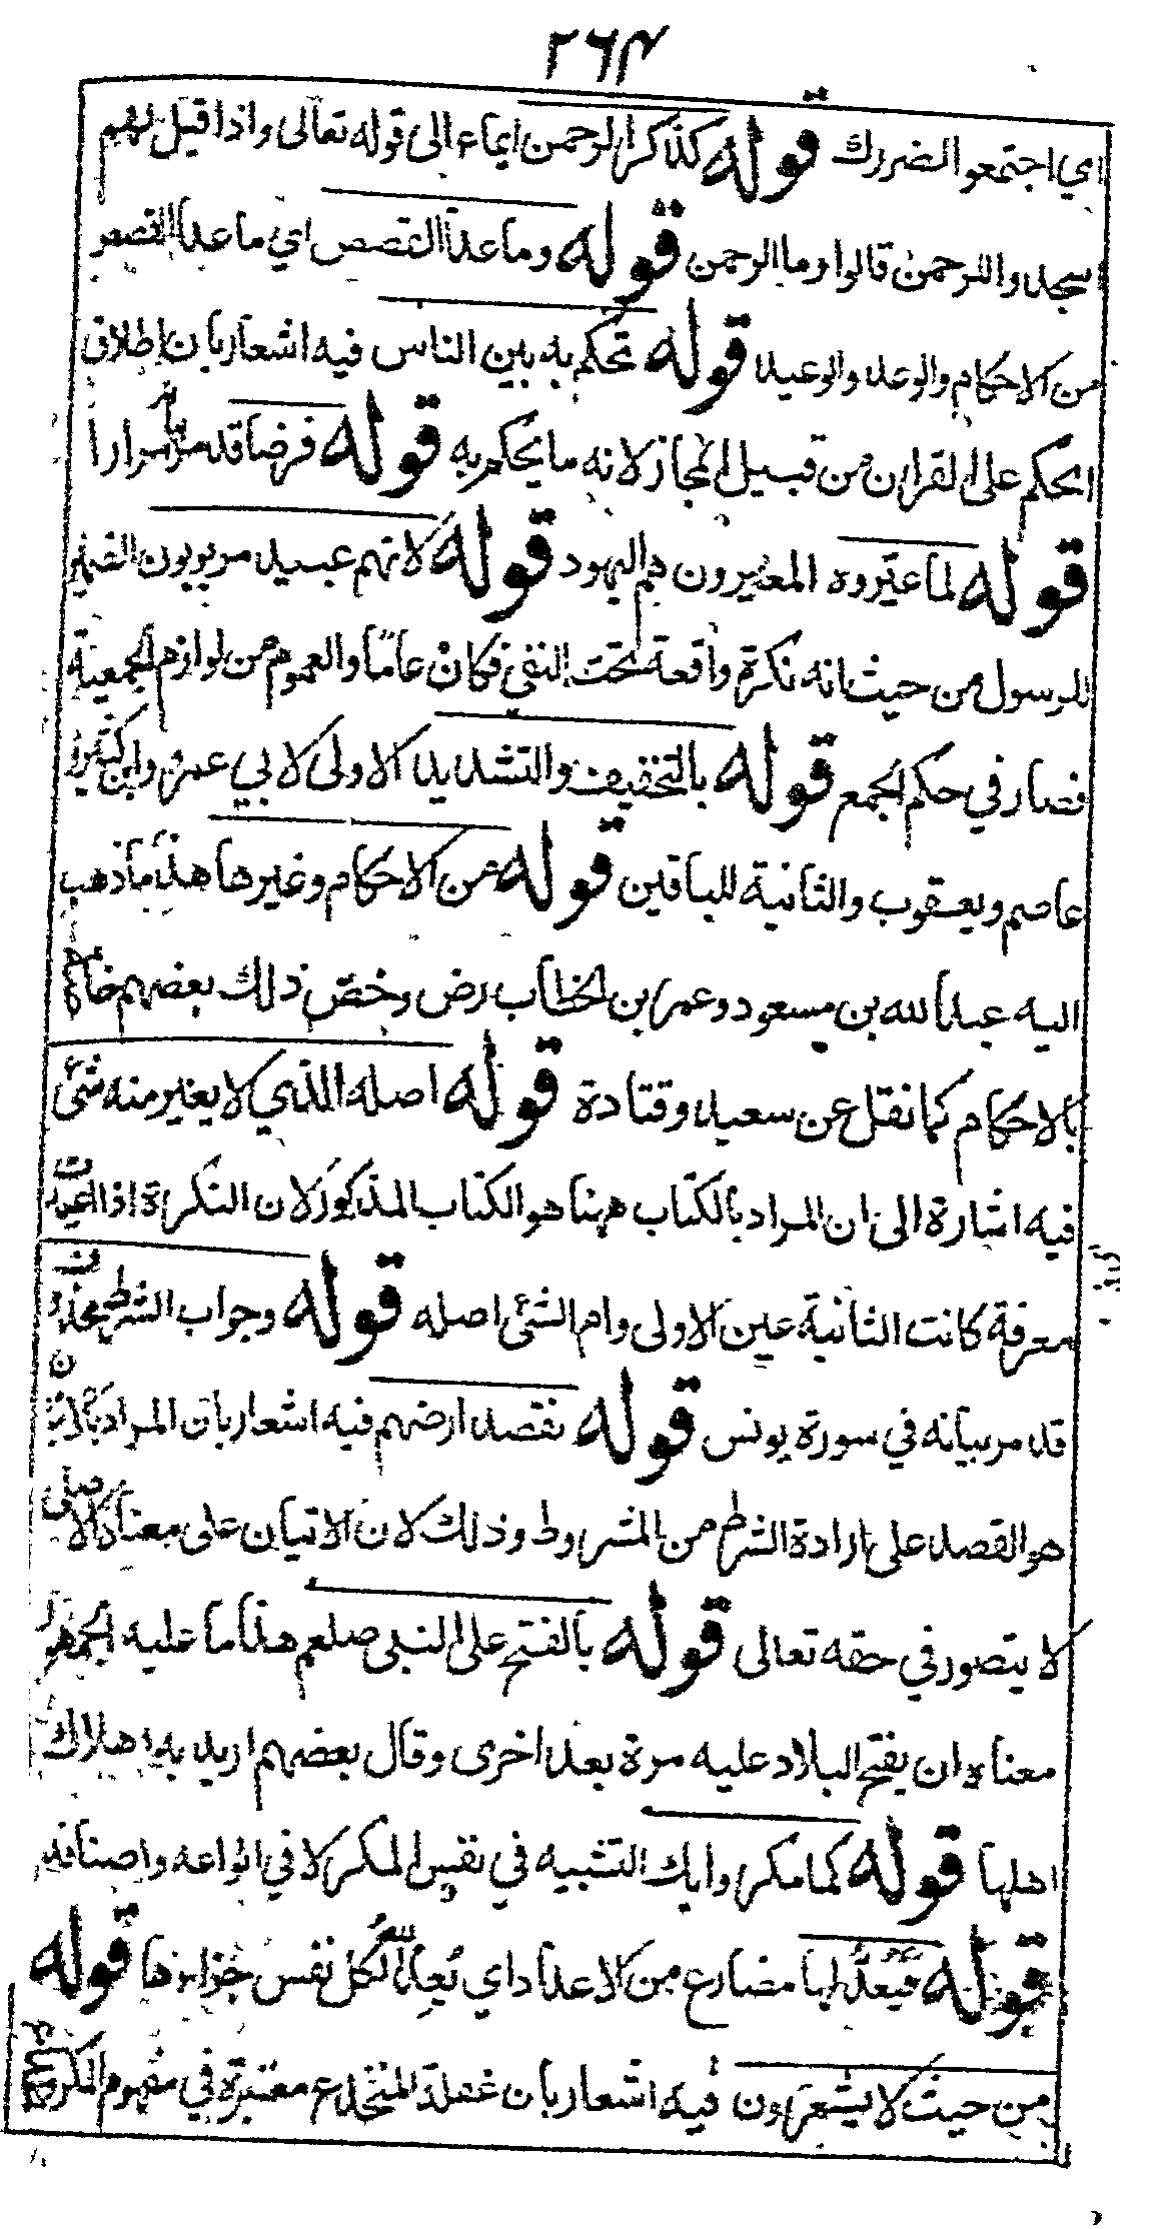 ٢٦٤
اي اجتمعوا لضررك قوله كذكر الرحمن ايماء الى قوله تعالى واذا قيل لهم
اسجدوا للرحمن قالوا وما الرحمن قوله وما عدا القصص اي ما عدا القصص
من الاحكام والوعد والوعيد قوله تحكم به بين الناس فيه اشعار بان اطلاق
الحكم على القران من قبيل المجاز لانه ما يحكم به قوله فرضا قد مر مرارا
قوله لما عيّروه المعيرون هم اليهود قوله لانهم عبيد مربوبون الضمير
للرسول من حيث انه نكرة واقعة تحت النفي فكان عامّا والعموم من لوازم الجمعية
فصار في حكم الجمع قوله بالتخفيف والتشديد الاولى لابي عمرو وابن كثير و
عاصم ويعقوب والثانية للباقين قوله من الاحكام وغيرها هذا ما ذهب
اليه عبد الله بن مسعود وعمر بن الخطاب رض وخصّ ذلك بعضهم
بالاحكام كما نقل عن سعيد وقتادة قوله اصله الذي لا يغير منه شئ
فيه اشارة الى ان المراد بالكتاب ههنا هو الكتاب المذكور لان النكرة اذا اعيدت
معرفة كانت الثانية عين الاولى وام الشئ اصله قوله وجواب الشرط محذوف
قد مر بيانه في سورة يونس قوله نقصد ارضهم فيه اشعار بان المراد بالاتيان
هو القصد على ارادة الشرط من المشروط وذلك لان الاتيان على معناه الاصلي
لا يتصور في حقه تعالى قوله بالفتح على النبى صلعم هذا ما عليه الجمهور
معناه ان يفتح البلاد عليه مرة بعد اخرى وقال بعضهم اريد به اهلاك
اهلها قوله كما مكروا بك التشبيه في نفس المكر لا في انواعه واصنافه
قوله فيعدّ لها مضارع من الاعداد اي يُعِدّ الله لكل نفس جزاءها قوله
من حيث لا يشعرون فيه اشعار بان غفلة المنخدع معتبرة في مفهوم المكر